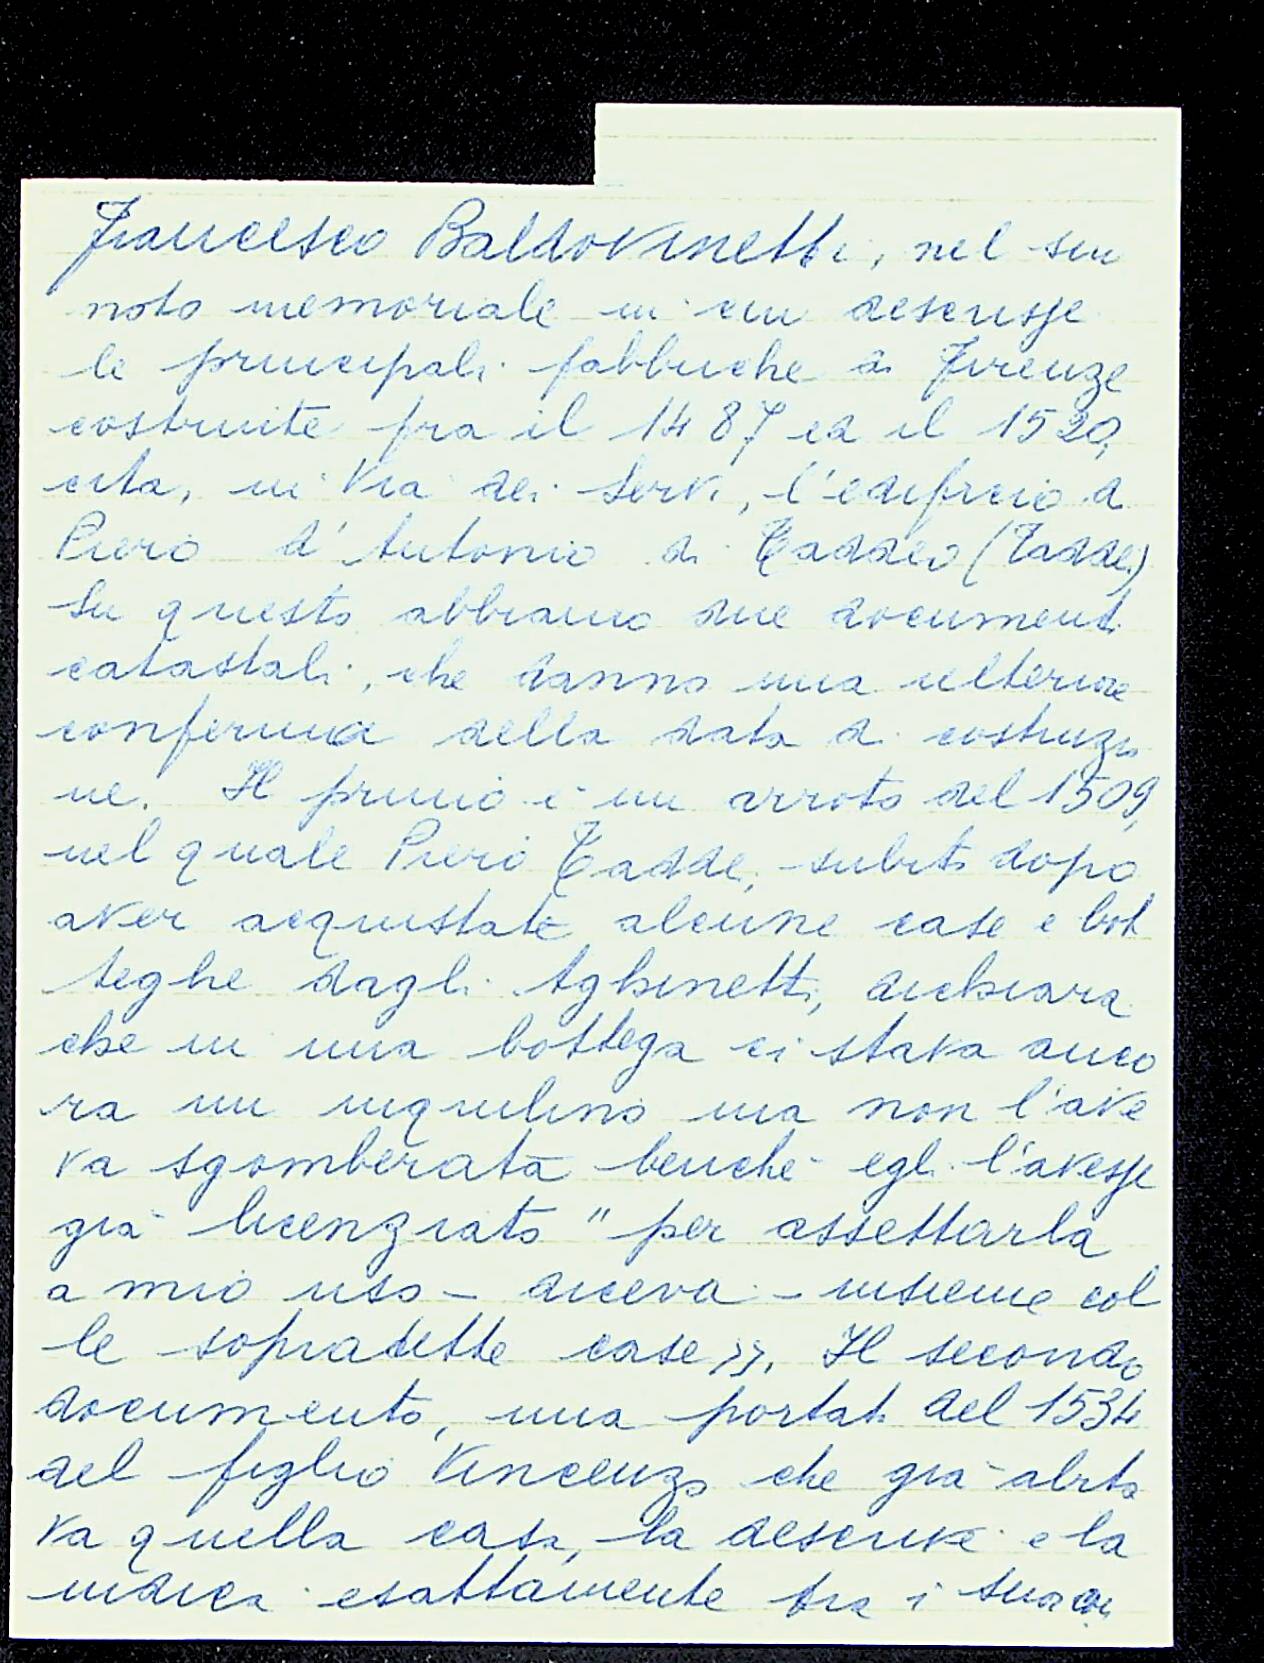 Francesco Baldovinetti, nel suo
noto memoriale in cui descrisse
le principali fabbriche di Firenze
costruite fra il 1487 ed il 1520,
cita, in Via dei Servi, l'edificio di
Piero d'Antonio di Taddeo (Taddei)
Su questo abbiamo due documenti
catastali, che danno una ulteriore
conferma della data di costruzio
ne. Il primo è un arroto del 1509,
nel quale Piero Taddei, subito dopo
aver acquistate alcune case e bot
teghe dagli Aghinetti, dichiara
che in una bottega ci stava anco
ra un inquilino ma non l'ave
va sgomberata benché egli l'avesse
già licenziato " per assettarla
a mio uso – diceva – insieme col
le sopradette case». Il secondo
documento, una portata del 1534
del figlio Vincenzo che già abita
va quella casa, la descrive e la
indica esattamente tra i suoi